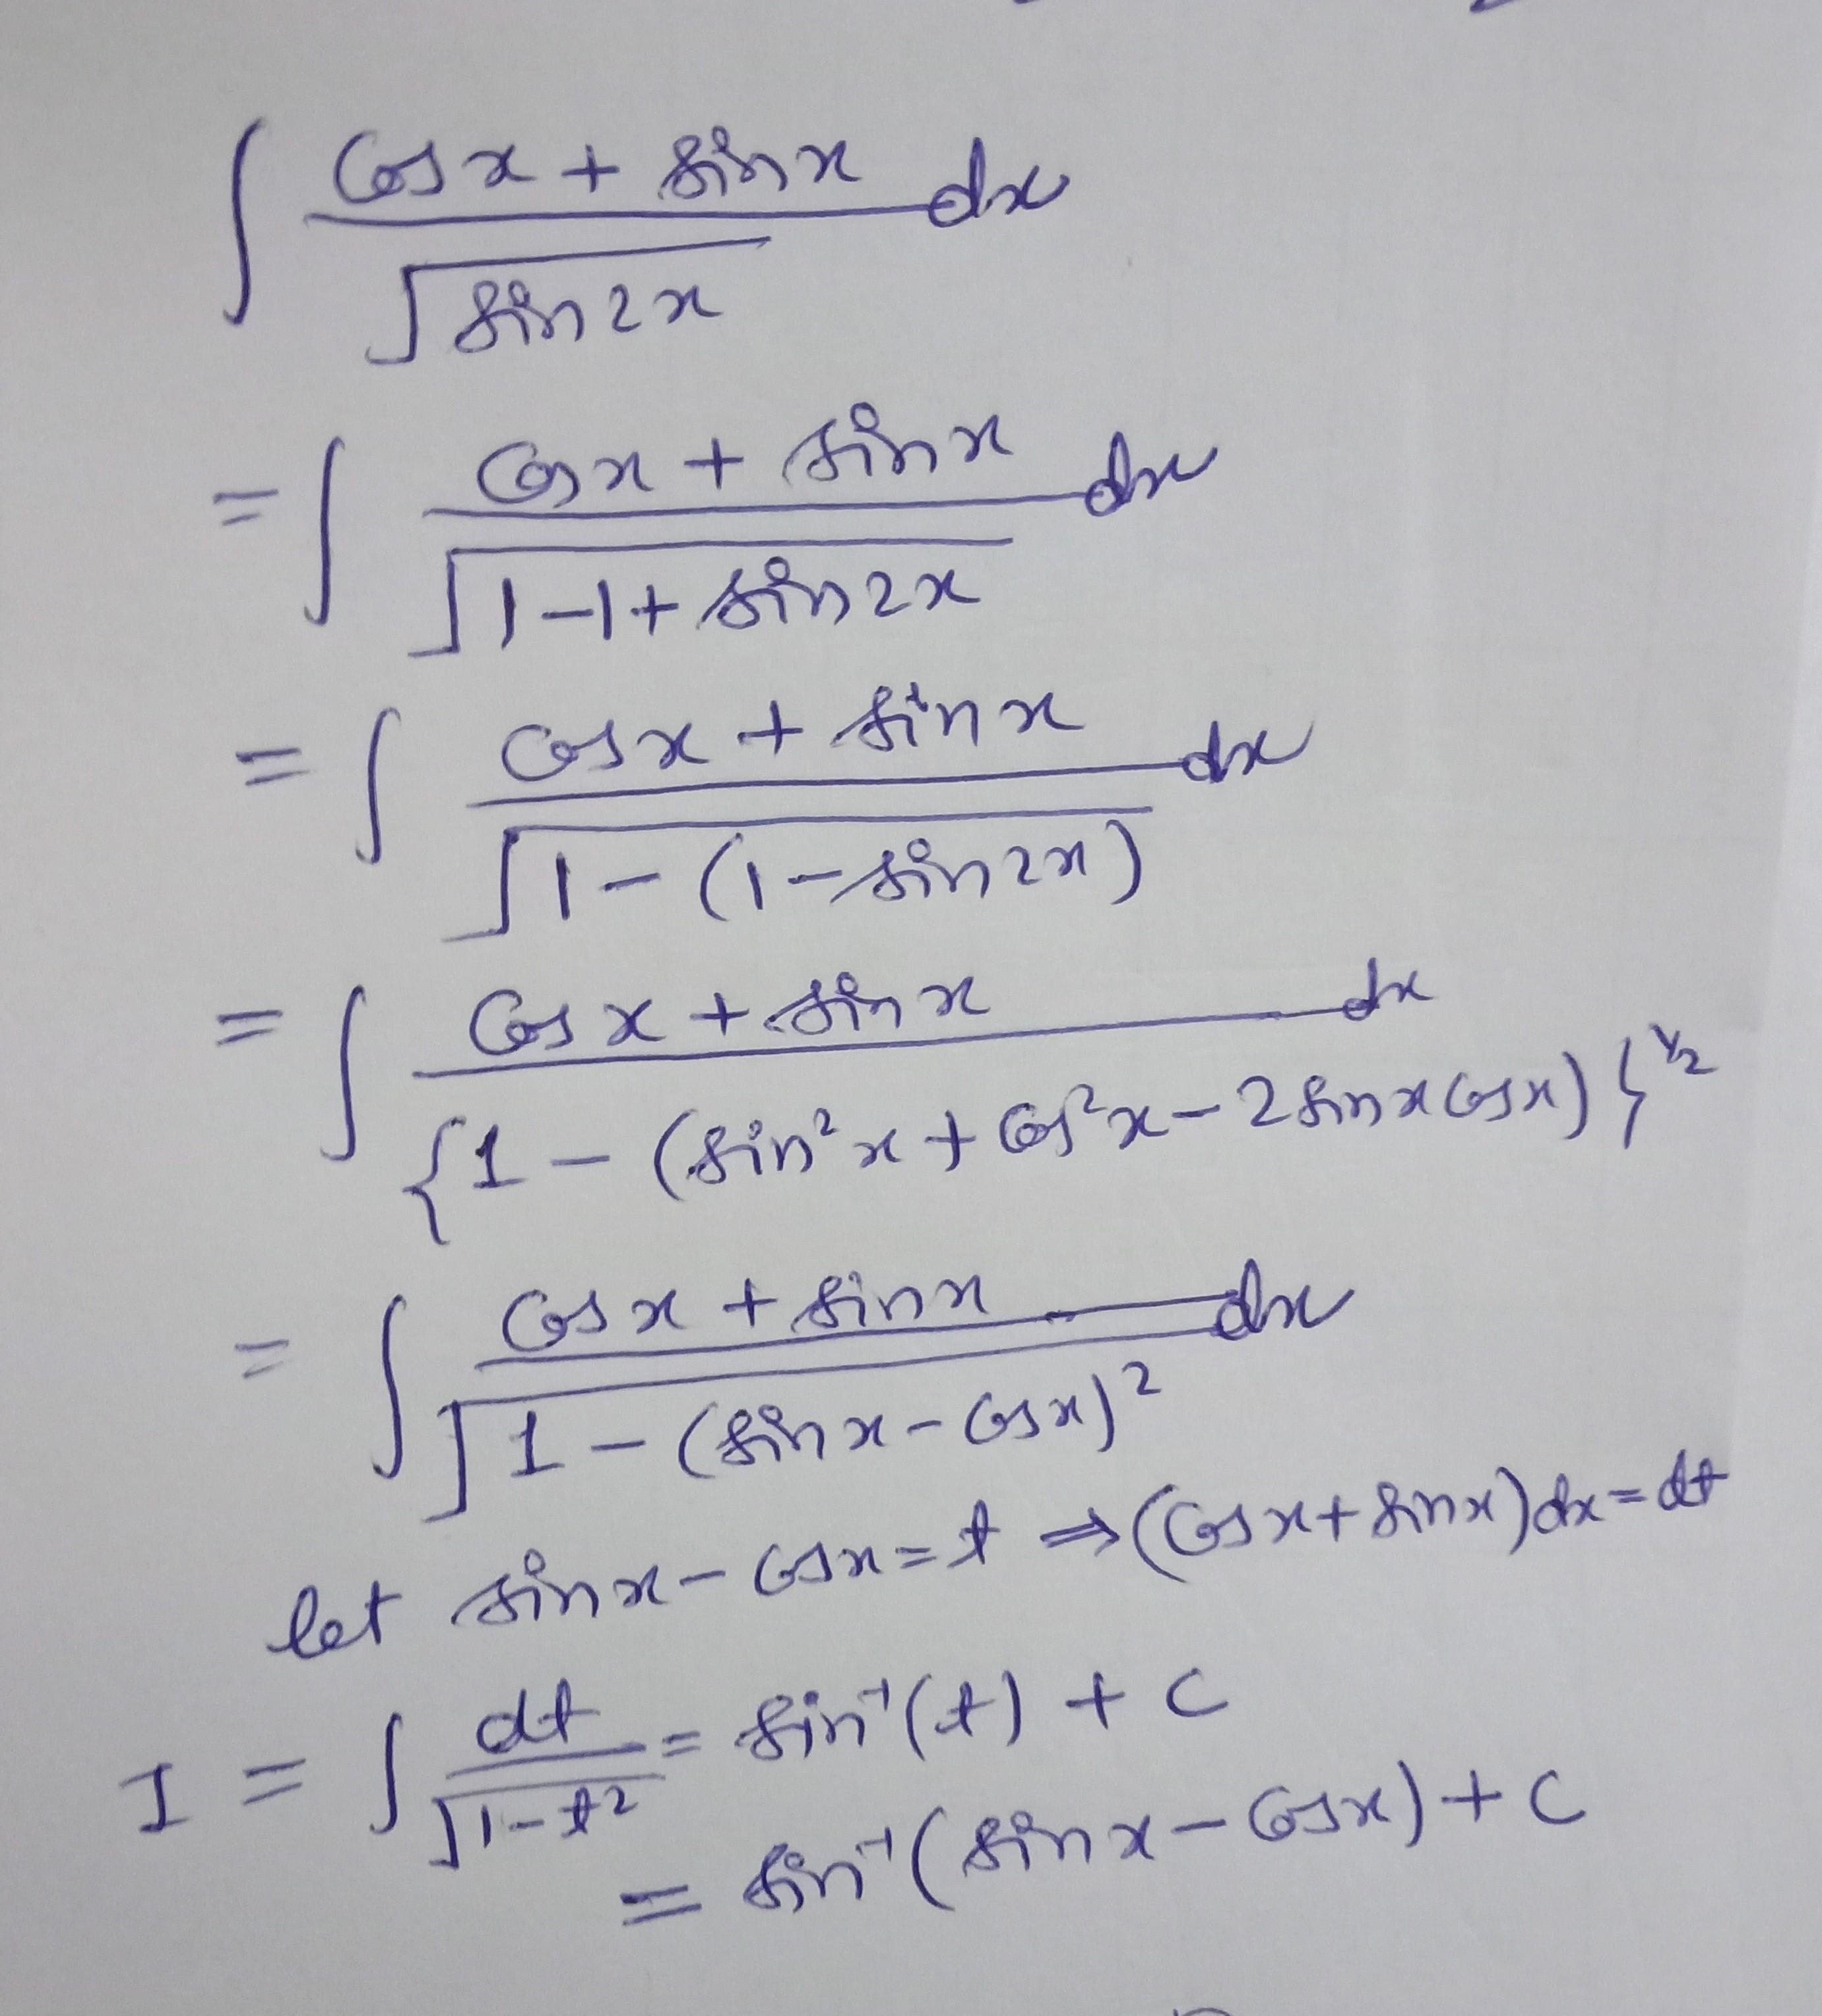 ∫ (cos x + sin x)/√(sin 2x) dx
= ∫ (cos x + sin x)/√(1-1+sin 2x) dx
= ∫ (cos x + sin x)/√(1-(1-sin 2x)) dx
= ∫ (cos x + sin x)/{1-(sin²x + cos²x - 2 sin x cos x)}^½ dx
= ∫ (cos x + sin x)/√(1-(sin x - cos x)²) dx
let sin x - cos x = t ⇒ (cos x + sin x) dx = dt
I = ∫ dt/√(1-t²) = sin⁻¹(t) + c
= sin⁻¹(sin x - cos x) + c